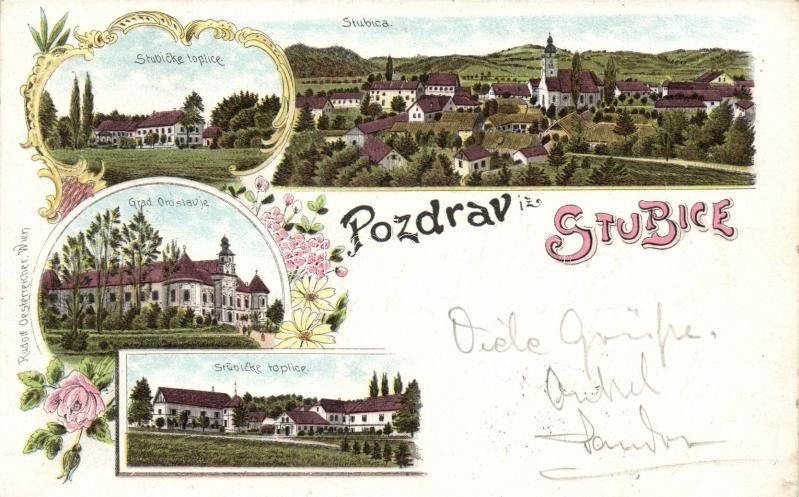 Stubica.
Stubičke toplice.
Pozdrav iz STUBICE
Grad Oroslavje
Rudolf Oesterreicher, Wien
Stubičke toplice.
Viele Grüße.
Onkel
Sandor